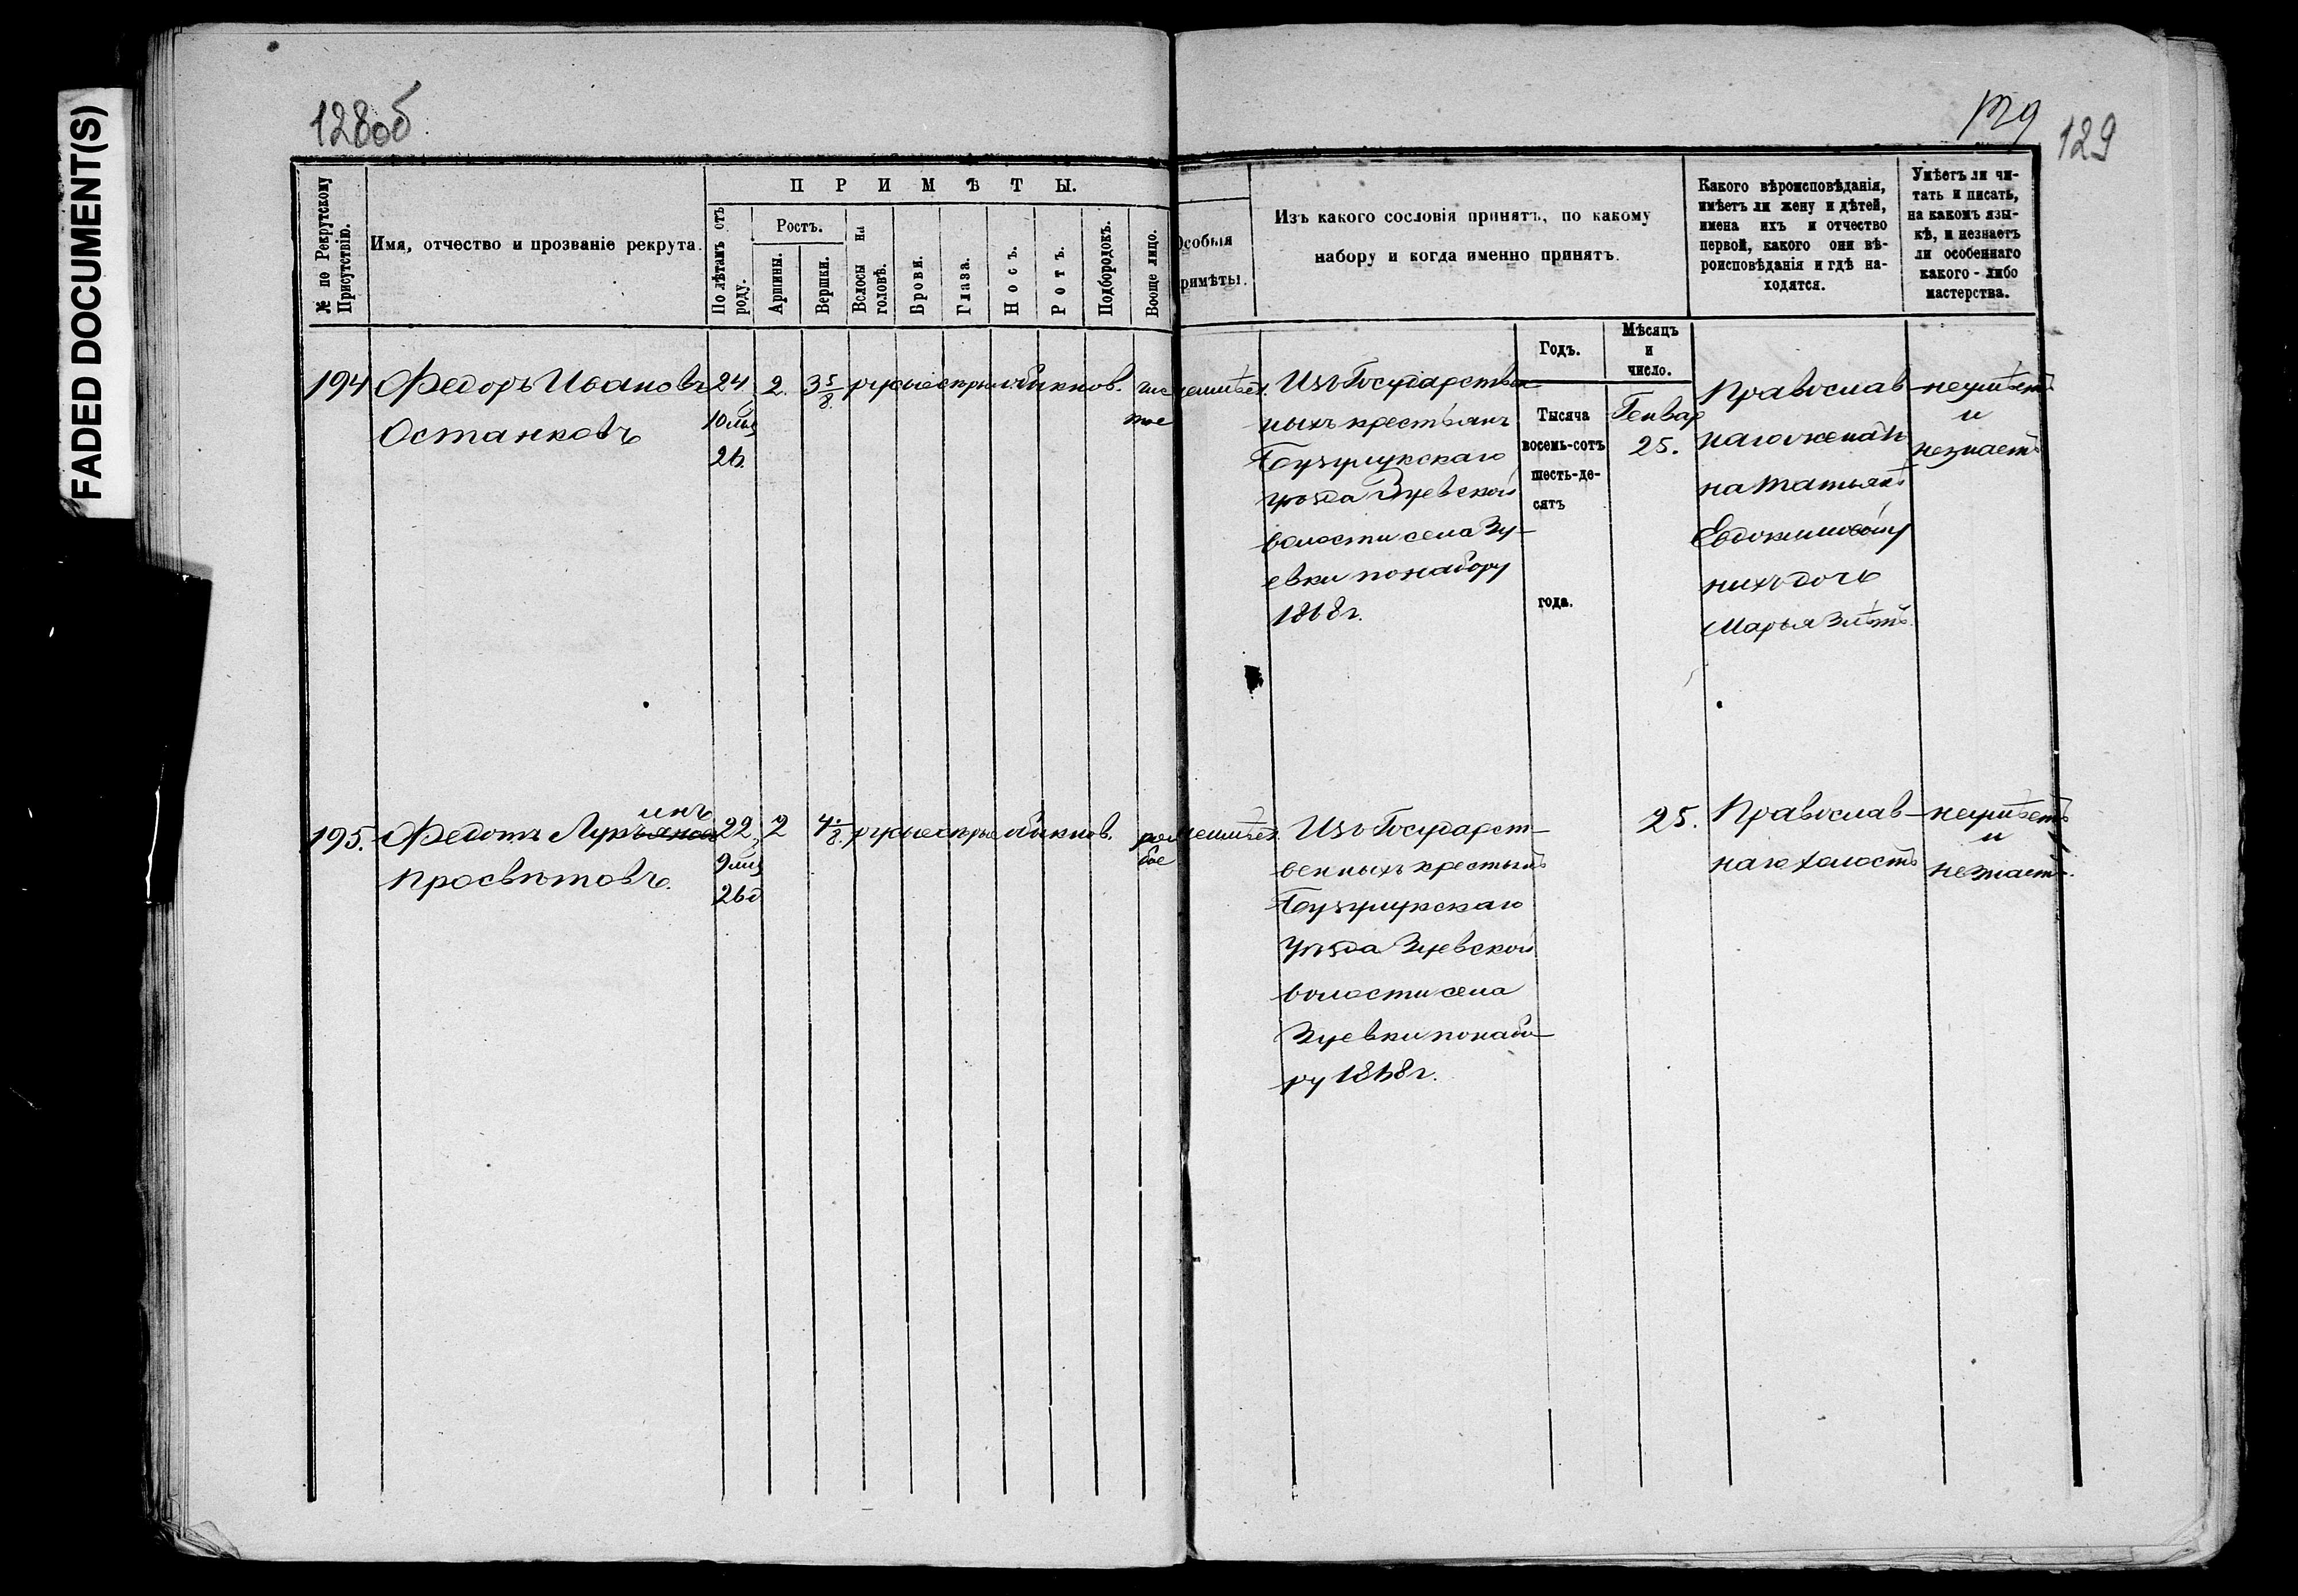 FADED DOCUMENT(S)
128об
129
129
№ по Рекрутскому Присутствію.
Имя, отчество и прозваніе рекрута.
ПРИМѢТЫ.
По лѣтамъ отъ роду.
Ростъ.
Аршины.
Вершки.
Волосы на головѣ.
Брови.
Глаза.
Носъ.
Ротъ.
Подбородокъ.
Вооще лицо.
Особыя
римѣты.
Изъ какого сословія принятъ, по какому
набору и когда именно принятъ.
Какого вѣроисповѣданія,
имѣетъ ли жену и дѣтей,
имена ихъ и отчество
первой, какого они вѣ-
роисповѣданія и гдѣ на-
ходятся.
Умѣетъ ли чи-
тать и писать,
на какомъ язы-
кѣ, и незнаетъ
ли особеннаго
какого-либо
мастерства.
Годъ.
Мѣсяцъ
и
число.
194 Федоръ Ивановъ
Останковъ
24
10 мц
2. 3 5/8 русые сѣрые обыкнов. чис
тое
неимѣет.
Изъ Государствен-
ныхъ крестьянъ
Бузулукскаго
уѣзда Зуевской
волости села Зу-
евки по набору
1868 г.
Тысяча
восемь-сотъ
шесть-де-
сятъ
года.
Генвар
25.
Православ-
наго женатъ
на Татьянѣ
Евдокимовой у
нихъ дочь
Марья 3 лѣтъ
неумѣетъ
и
незнаетъ
195. Федотъ Лукъянов
инъ
Просвѣтовъ.
22
9 мц
26 д
2 4/8 русые сѣрые обыкнов. ря
бое
неимѣет.
Изъ Государст-
венныхъ крестьянъ
Бузулукскаго
Уѣзда Зуевской
волости села
Зуевки по набо-
ру 1868 г.
25.
Православ-
наго холостъ
неумѣетъ
и
незнаетъ.